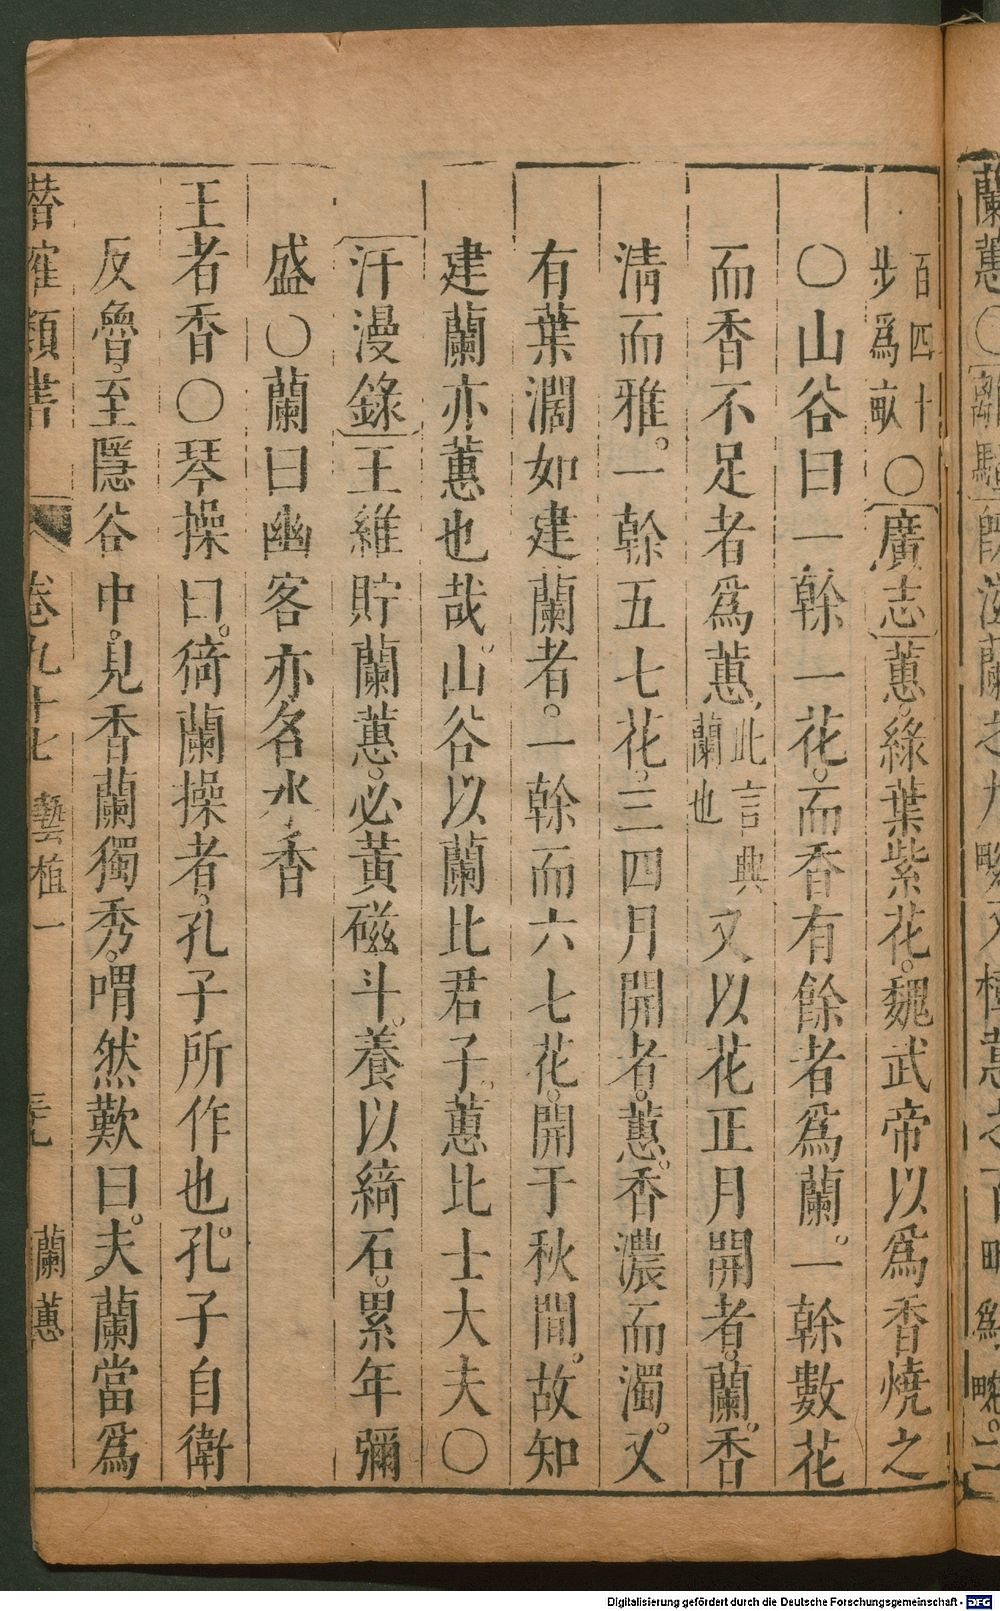 百四十
步爲畝
○廣志蕙綠葉紫花。魏武帝以爲香燒之
○山谷曰一榦一花。而香有餘者爲蘭。一榦數花
而香不足者爲蕙
此言典
蘭也
又以花正月開者。蘭。香
淸而雅。一榦五七花。三四月開者。蕙。香濃而濁。又
有葉濶如建蘭者。一榦而六七花。開于秋間。故知
建蘭亦蕙也哉。山谷以蘭比君子。蕙比士大夫○
汗漫錄王維貯蘭蕙。必黃磁斗。養以綺石。累年彌
盛○蘭曰幽客亦名水香
王者香○琴操曰。猗蘭操者。孔子所作也。孔子自衛
反魯。至隱谷中。見香蘭獨秀。喟然歎曰。夫蘭當爲
潛確類書 卷九十七 藝植一 蘭蕙
Digitalisierung gefördert durch die Deutsche Forschungsgemeinschaft - DFG